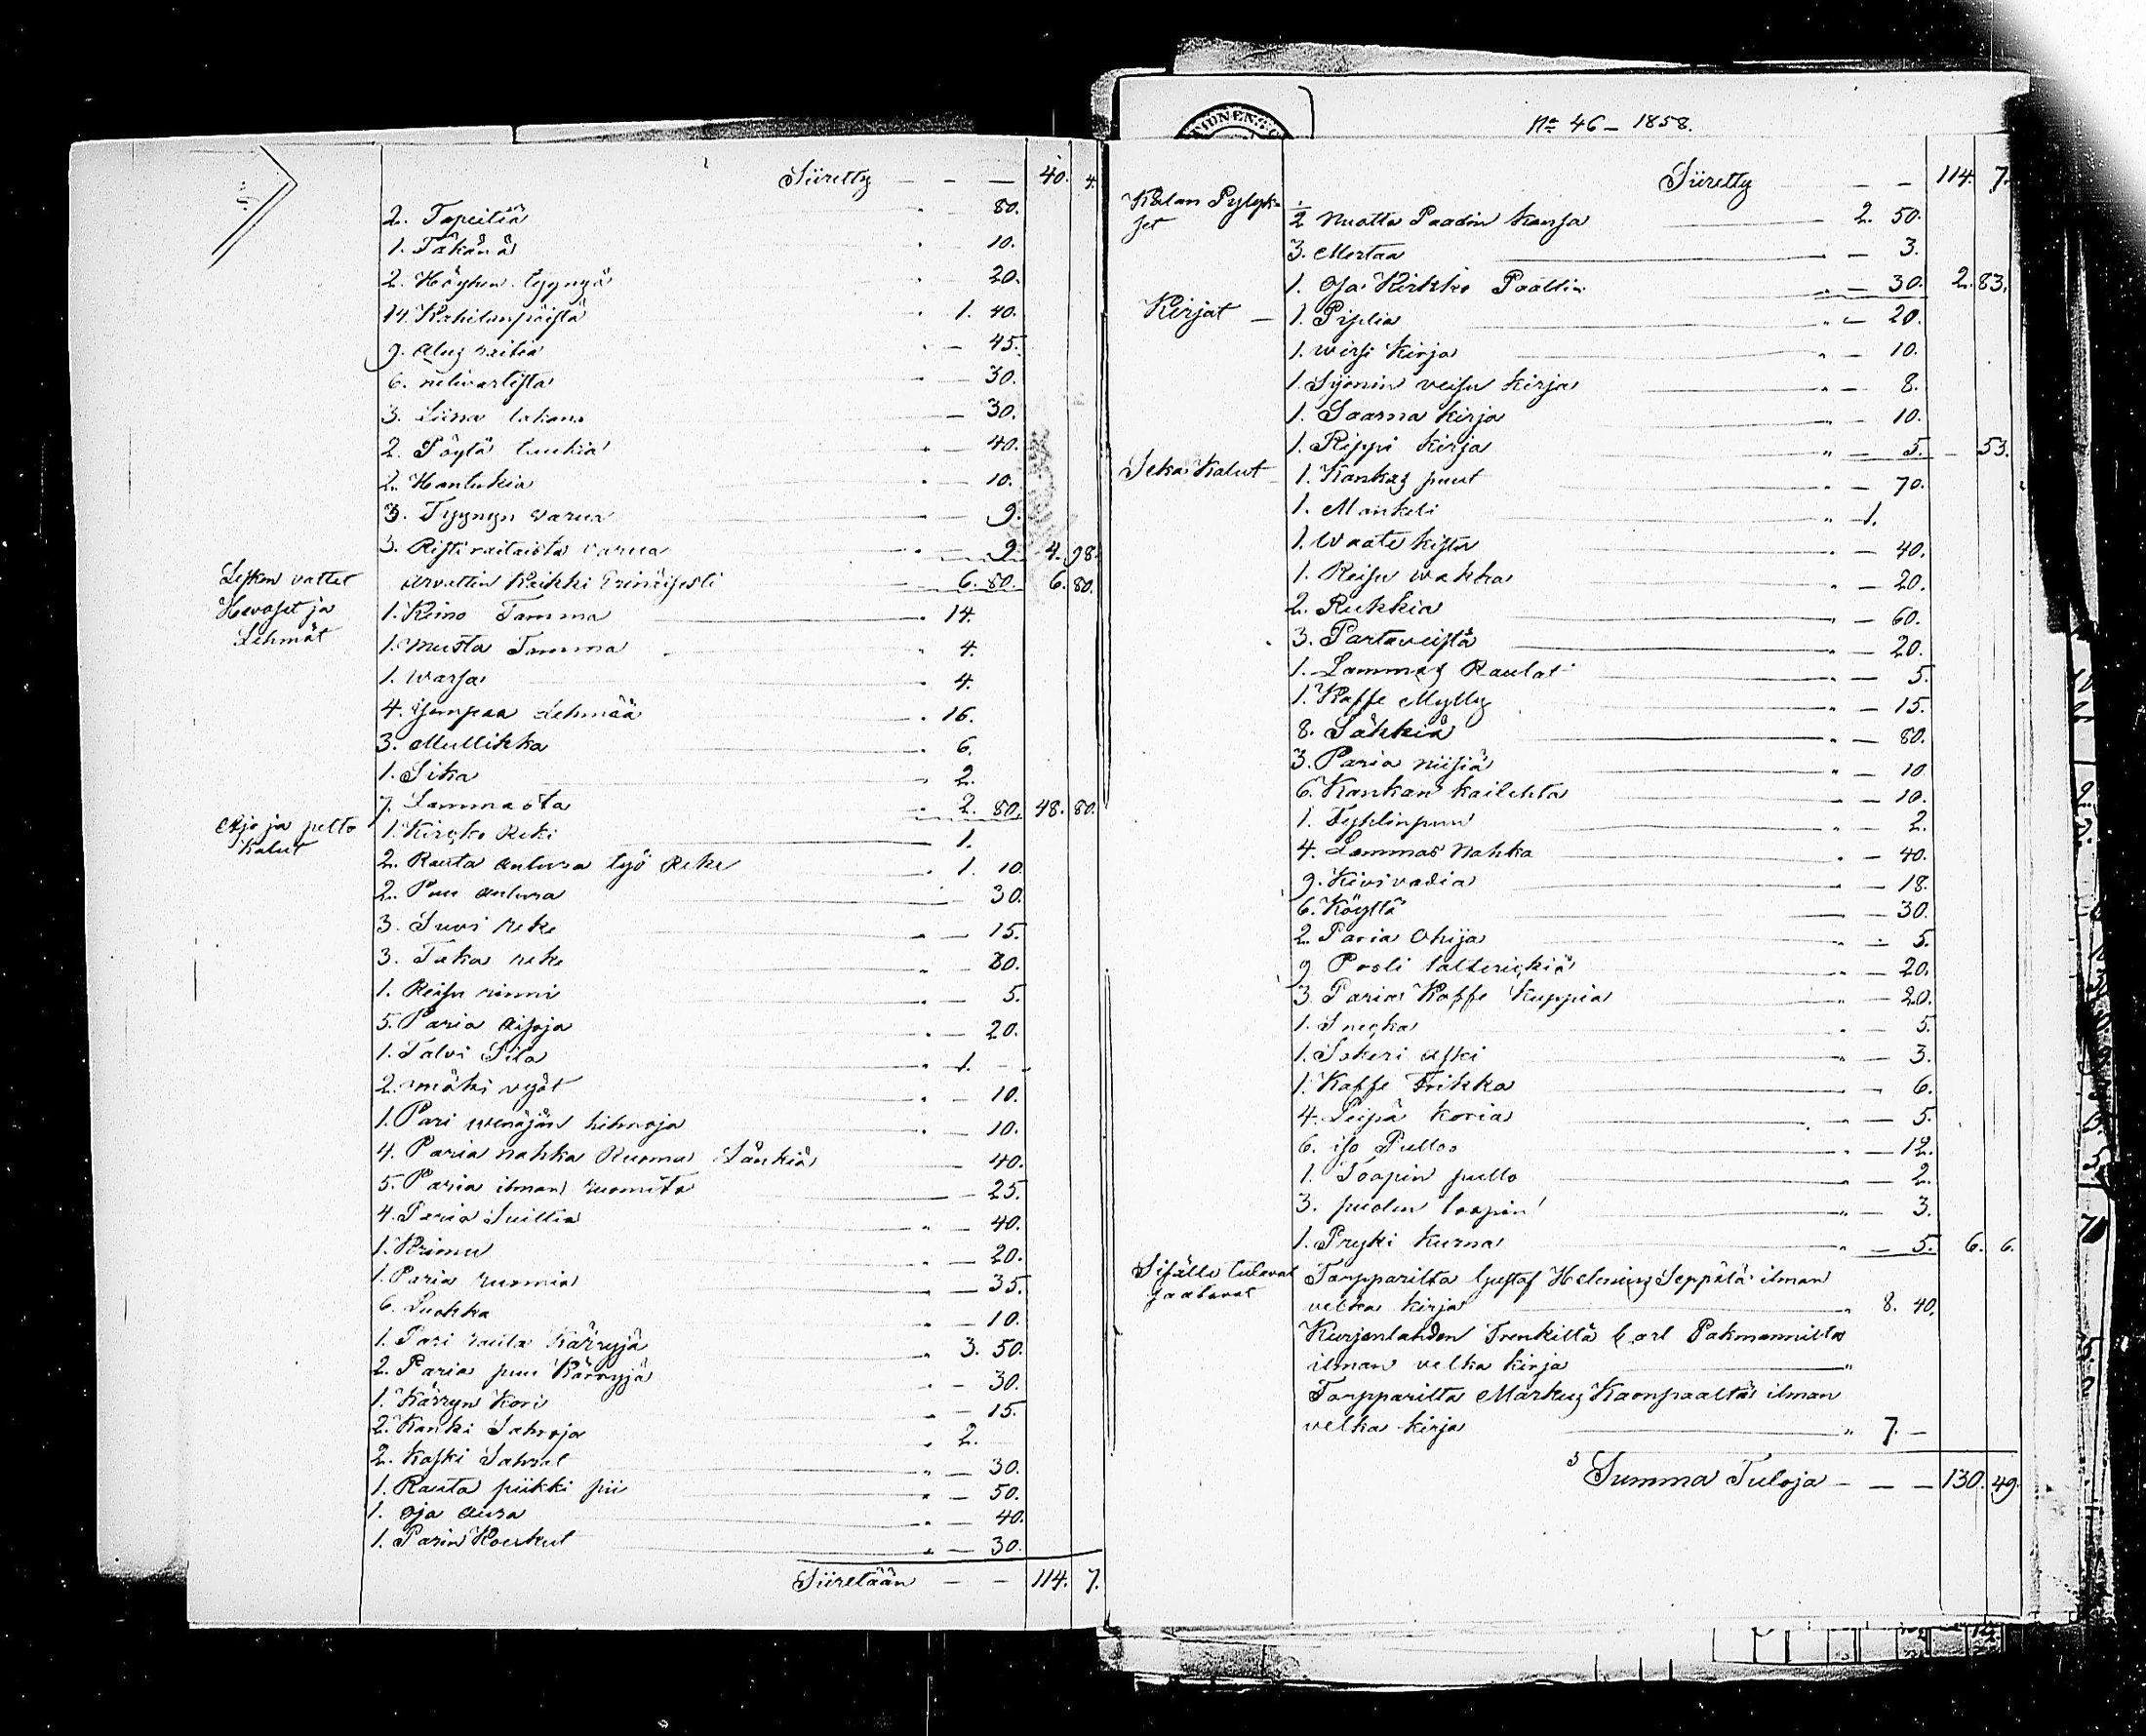 Siiretty - - - 40. 4.
2. Tapeitiä " - 80.
1. Täkänä " - 10.
2. Höyhen tyynyä " 20.
14. Kahilanpäistä " 1. 40.
9. Alus raitia " - 45.
6. nelivartista " - 30.
3. Liina lakana - 30.
2. Pöytä tuukia " - 40.
2. Hantukia " - 10.
3. Tyynyn varua " - 9.
3. Ristiraitaista varua " - 9. 4. 98.
Lesken vattet arvattin Kaikki 6. 80. 6. 80.
Hevoset ja Lehmät
1. Kimo Tamma " 14.
1. Musta Tamma " 4.
1. Warsa " 4.
4. Lehmää " 16.
3. Mullikka " 6.
1. Sika " 2.
7. Lammasta " 2. 80. 48. 80.
Ajo ja pelto kalut
1. Kirko Reki 1.
2. Rauta antura työ Reke " 1. 10.
2. Puu antura 30.
3. Suvi reke " - 15.
3. Taka reke " - 30.
1. Reisu rinni " - 5.
5. Paria aisoja " - 20.
1. Talvi Sila " 1. -
2. mäki vyöt " - 10.
1. Pari wenäjän hihnoja " - 10.
4. Paria nahka Ruoma Länkiä - 40.
5. Paria ilman ruomita - 25.
4. Paria Suittia " - 40.
1. Krimu " - 20.
1. Paria ruomia - 35.
6. Luokka " - 10.
1. Pari rauta Kärryjä " 3. 50.
2. Paria puu Kärryjä " - 30.
1. Kärryn Kori " - 15.
2. Kanki Sahroja " 2.
2. Kaski Sahrat " - 30.
1. Rauta piikki pii " - 50.
1. oja aura " - 40.
1. Parin Koukut " - 30.
Siiretään - - 114. 7.
No 46 - 1858.
Siiretty - - 114. 7.
Kalan Pylykset
1/2 Nuotta Paadin Kansa 2. 50.
3. Mertaa " - 3.
1. Osa Kirkko Paattin " - 30. 2. 83.
Kirjat - 1. Piplia " - 20.
1. wirsi Kirja " - 10.
1. Syonin veisu kirja " - 8.
1. Saarna kirja " - 10.
1. Rippi kirja " - 5. - 53.
Seka Kalut - 1. Kankas puut " - 70.
1. Mankeli " 1.
1. Waate kistu " - 40.
1. Reisu wakka " - 20.
2. Rukkia " - 60.
3. Partaveistä " - 20.
1. Lammas Raudat " - 5.
1. Kaffe Mylly " - 15.
8. Säkkiä " - 80.
3. Paria niisiä " - 10
6. Kankan kailehta " - 10.
1. 2.
4. Lammas Nahka " - 40.
9. Kivivadia - 18.
6. Köyttä - 30.
2. Paria Ohija " - 5.
9 Posli talterickiä " - 20.
3. Paria Kaffe Kuppia " - 20.
1. Snecka " - 5.
1. Sokeri aski " - 3.
1. Kaffe Trikka " 6.
4. Leipä Koria " - 5.
6. iso Pulloo " - 12.
1. Toopin pullo " - 2.
3. puolen toopin " - 3.
1. Pryki Kurna " - 5. 6. 6.
Sisälle tulevat saatavat
Torpparilta Gustaf Seppälä ilman
velka kirja " 8. 40.
Kurjenlahden Trenkiltä Carl Pakmannilta
ilman velka kirja "
Torpparilta Markus Kaonpaalta ilman
velka kirja " 7. -
Summa Tuloja - - - 130. 49.